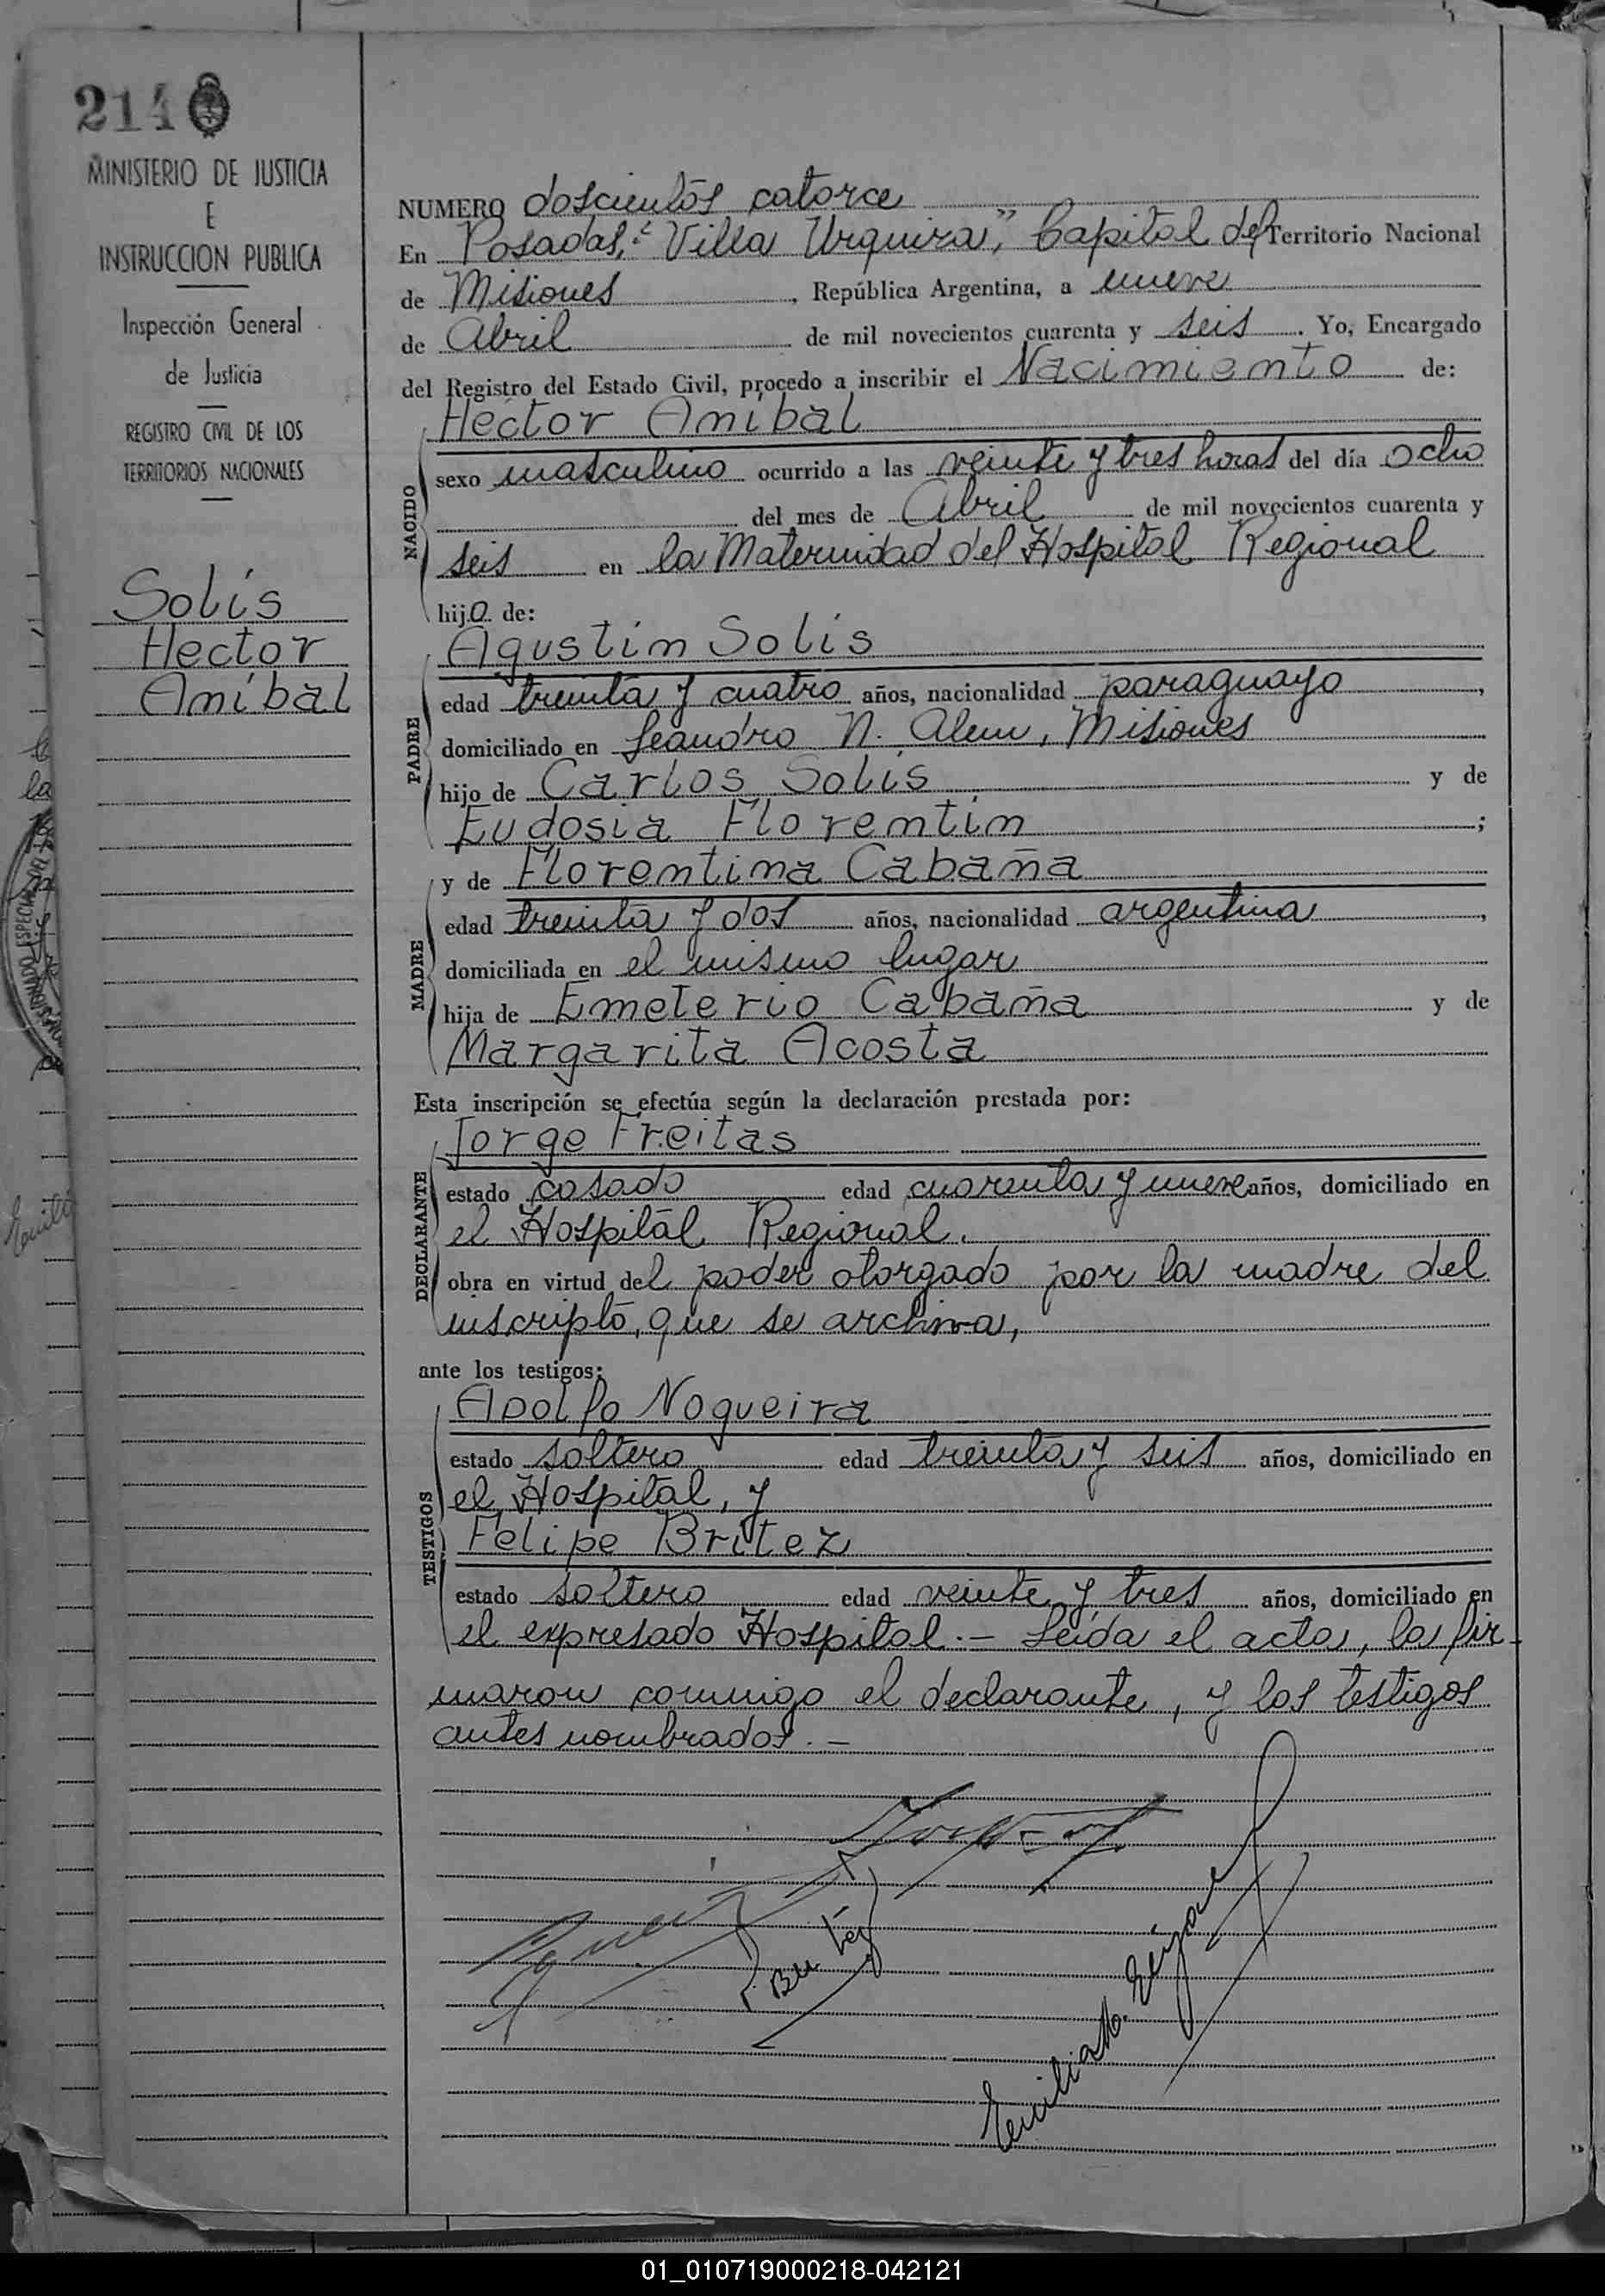 214
MINISTERIO DE JUSTICIA
E
INSTRUCCION PUBLICA
Inspección General
de Justicia
REGISTRO CIVIL DE LOS
TERRITORIOS NACIONALES
Solís
Hector
Aníbal
NUMERO doscientos catorce
En Posadas, "Villa Urquiza", Capital del Territorio Nacional
de Misiones, República Argentina, a nueve
de Abril de mil novecientos cuarenta y seis. Yo, Encargado
del Registro del Estado Civil, procedo a inscribir el Nacimiento de:
NACIDO
Héctor Aníbal
sexo masculino ocurrido a las veinte y tres horas del día ocho
del mes de Abril de mil novecientos cuarenta y
seis en la Maternidad del Hospital Regional
hijo de:
PADRE
Agustin Solis
edad treinta y cuatro años, nacionalidad paraguayo,
domiciliado en Leandro N. Alem, Misiones
hijo de Carlos Solís y de
Eudosia Florentin;
MADRE
y de Florentina Cabaña
edad treinta y dos años, nacionalidad argentina,
domiciliada en el mismo lugar
hija de Emeterio Cabaña y de
Margarita Acosta
Esta inscripción se efectúa según la declaración prestada por:
DECLARANTE
Jorge Freitas
estado casado edad cuarenta y nueve años, domiciliado en
el Hospital Regional.
obra en virtud del poder otorgado por la madre del
inscripto, que se archiva,
ante los testigos:
TESTIGOS
Adolfo Nogueira
estado soltero edad treinta y seis años, domiciliado en
el Hospital, y
Felipe Britez
estado soltero edad veinte y tres años, domiciliado en
el expresado Hospital.- Leída el acta, la fir-
maron conmigo el declarante, y los testigos
antes nombrados.-
01_010719000218-042121